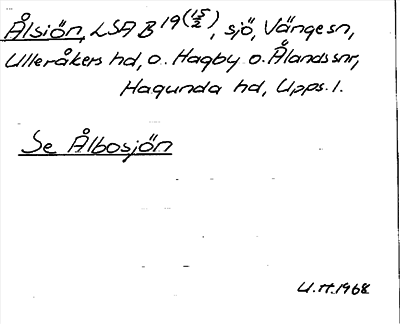 Ålsjön, LSA B 19 (15/2), sjö, Vänge sn,
Ulleråkers hd, o. Hagby o. Ålands snr,
Hagunda hd, Upps. l.
Se Ålbosjön
U.H.1968